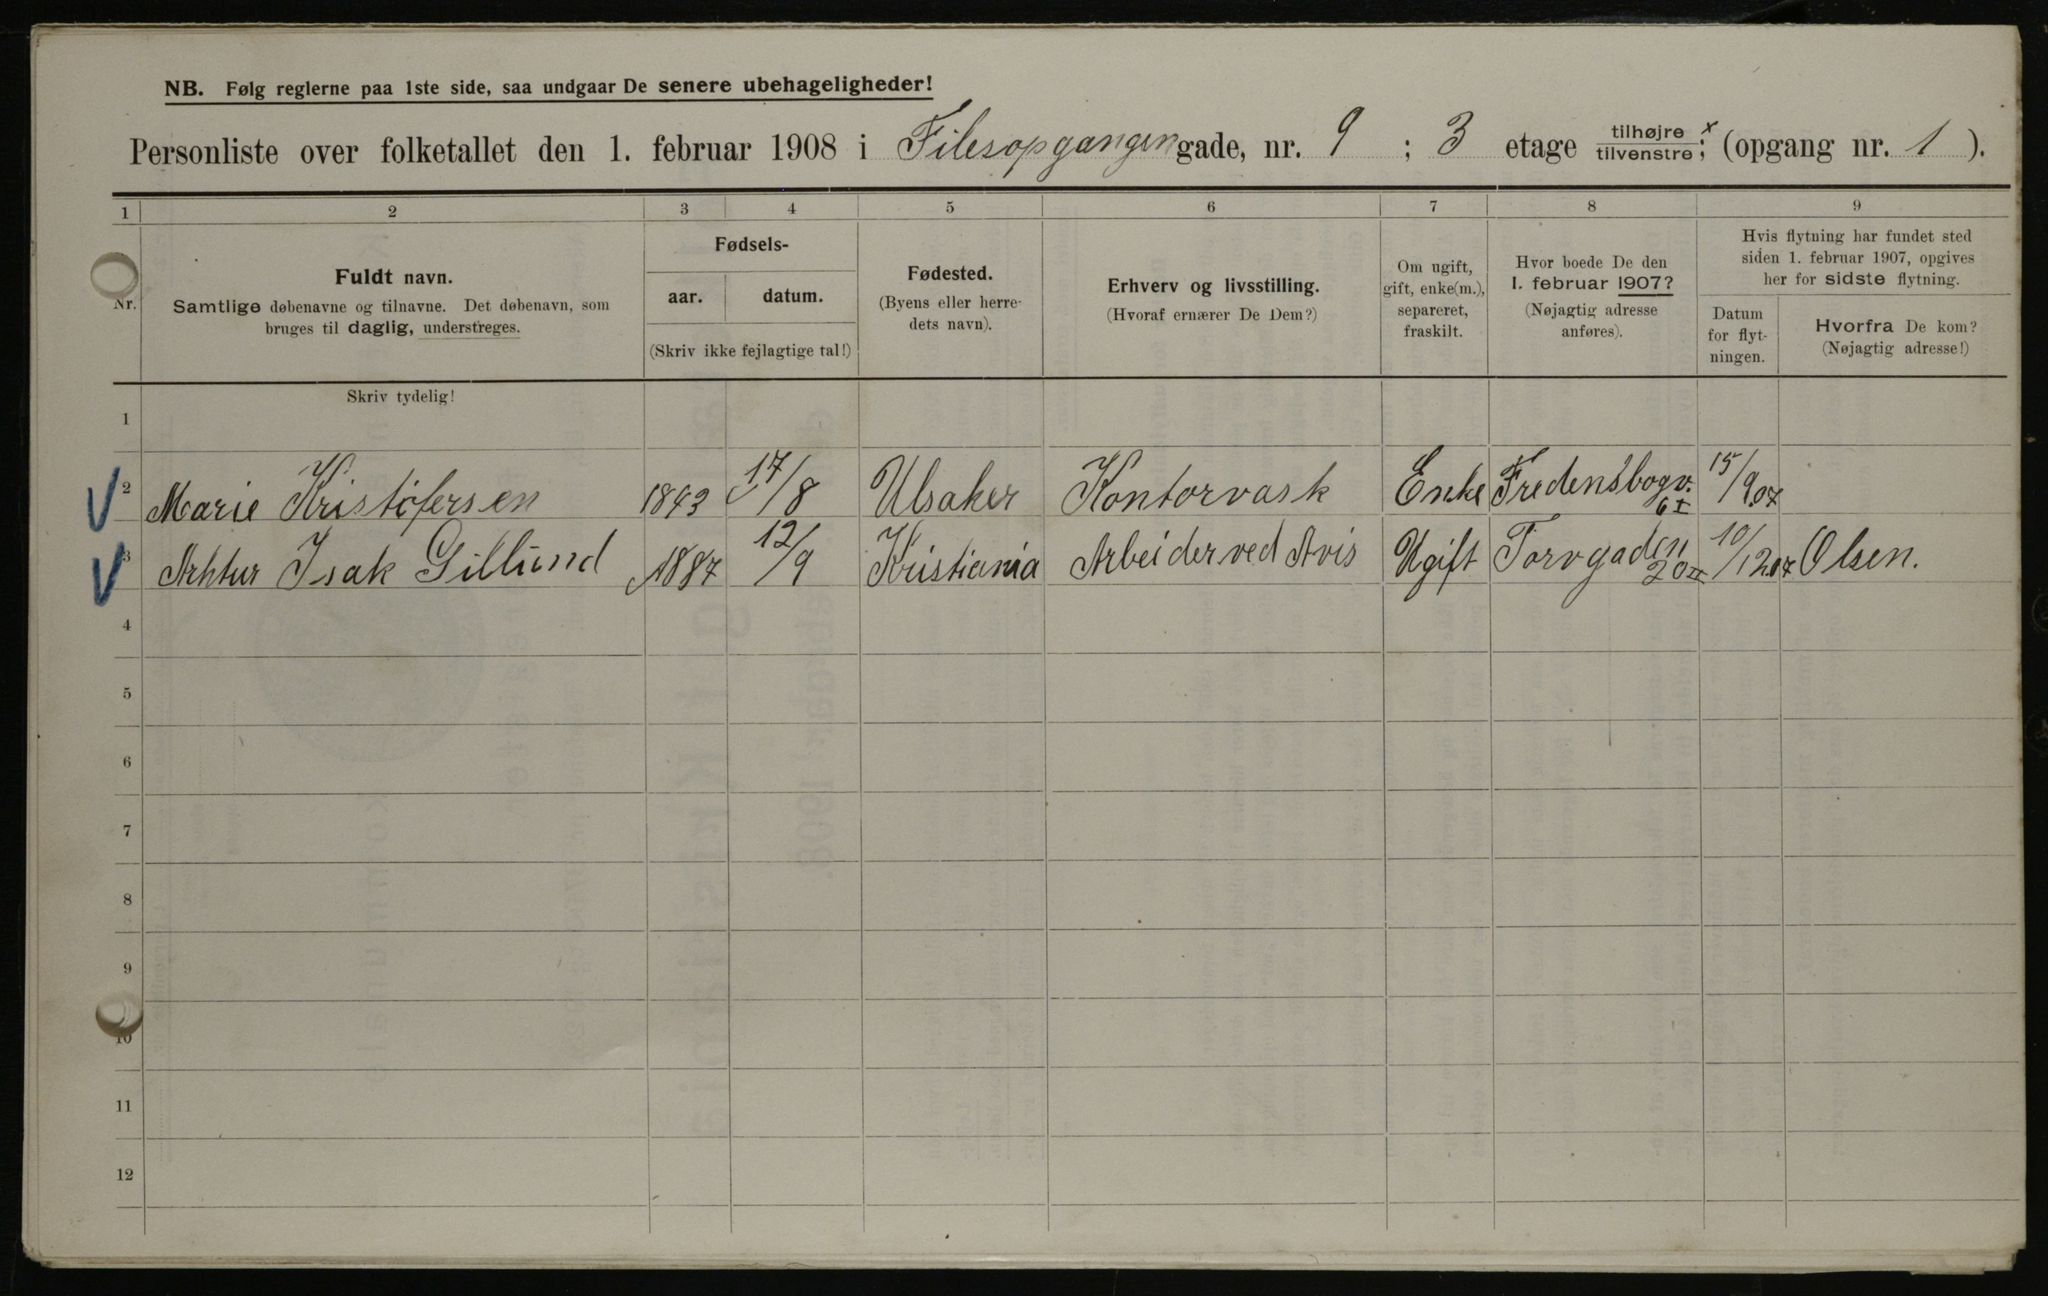 NB. Følg reglerne paa 1ste side, saa undgaar De senere ubehageligheder!
Personliste over folketallet den 1. februar 1908 i Filesopgangen gade, nr. 9 ; 3 etage tilhøjre x / tilvenstre; (opgang nr. 1 ).
1 2 3 4 5 6 7 8 9
Nr.
Fuldt navn.
Samtlige døbenavne og tilnavne. Det døbenavn, som
bruges til daglig, understreges.
Fødsels-
aar. datum.
(Skriv ikke fejlagtige tal!)
Fødested.
(Byens eller herre-
dets navn).
Erhverv og livsstilling.
(Hvoraf ernærer De Dem?)
Om ugift,
gift, enke(m.),
separeret,
fraskilt.
Hvor boede De den
1. februar 1907?
(Nøjagtig adresse
anføres).
Hvis flytning har fundet sted
siden 1. februar 1907, opgives
her for sidste flytning.
Datum
for flyt-
ningen.
Hvorfra De kom?
(Nøjagtig adresse!)
Skriv tydelig!
1
2 Marie Kristofersen 1843 17/8 Ulsaker Kontorvask Enke Fredensbogv. 6 I 15/9 07
3 Arhtur Isak Gillund 1887 12/9 Kristiania Arbeider ved Avis Ugift Torvgaden 20 II 10/12 07 Olsen.
4
5
6
7
8
9
10
11
12